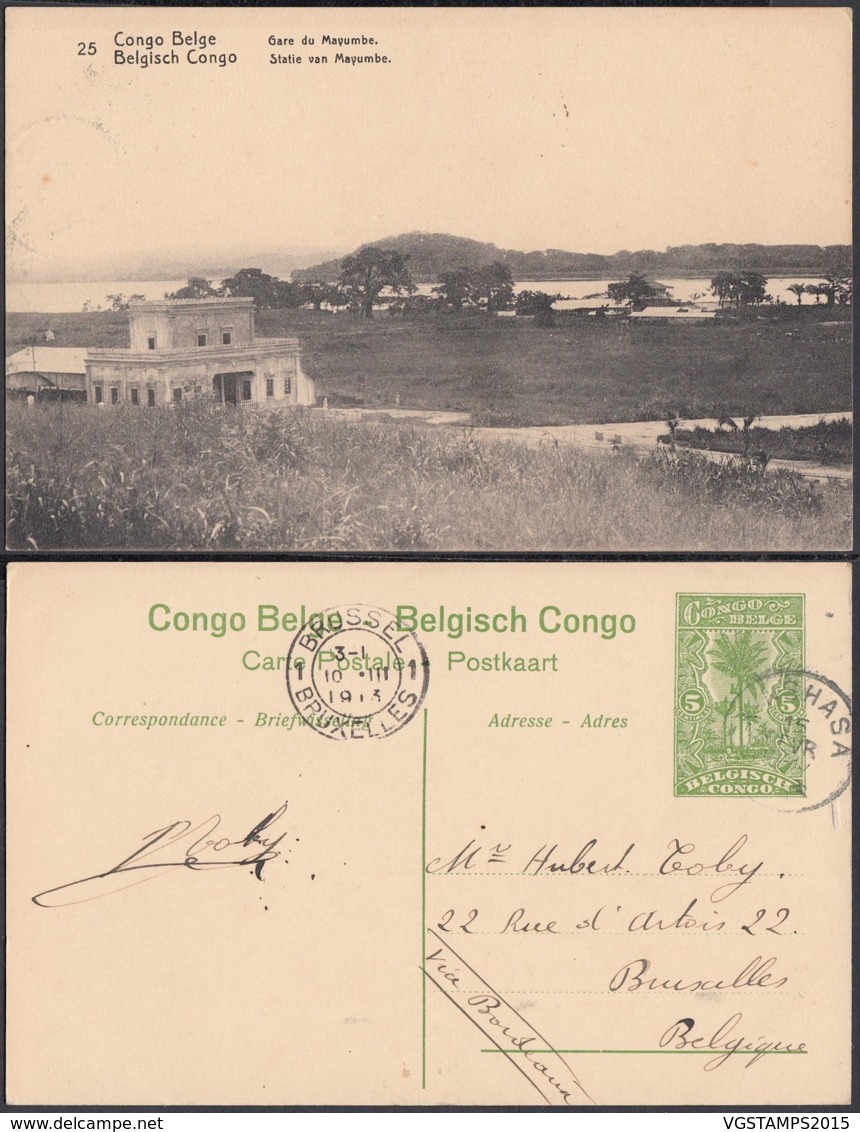 25 Congo Belge Gare du Mayumbe.
Belgisch Congo Statie van Mayumbe.
Congo Belge. Belgisch Congo
Carte Postale Postkaart
Correspondance - Briefwisseling
Adresse - Adres
CONGO BELGE
5 5
BELGISCH CONGO
BRUSSEL
3-
1 10 III 1
1913
BRUXELLES
HASA
15
Toby.
Mr Hubert. Toby.
22 Rue d'Artois 22.
Bruxelles
Belgique
Via Bordeaux
delcampe.net
VGSTAMPS2015